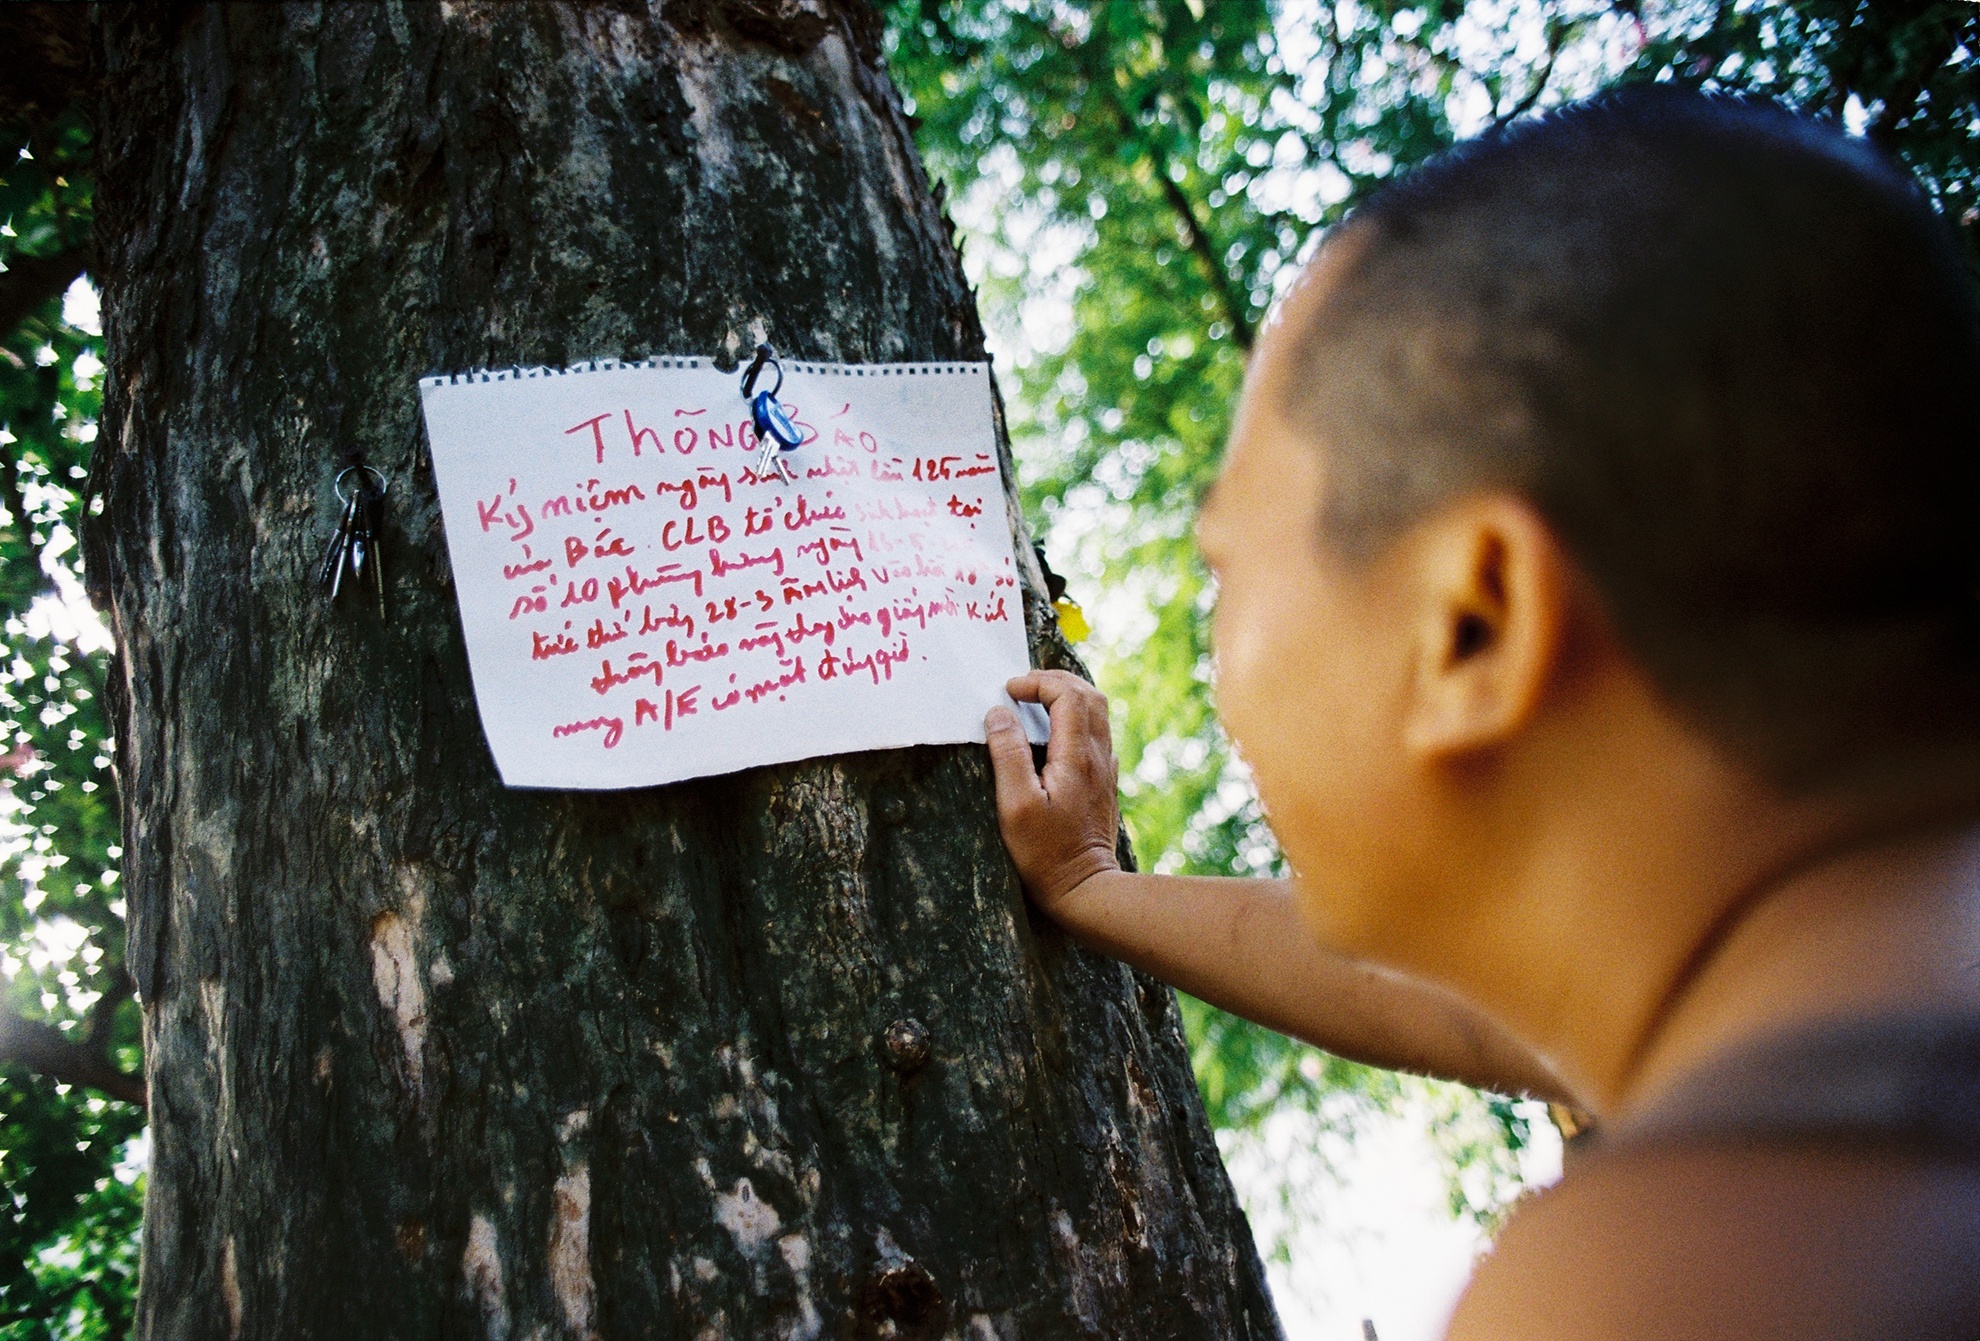 Thông Báo
Kỷ niệm ngày sinh nhật lần 125 năm
của Bác. CLB tổ chức sinh hoạt tại
số 10 phùng hưng ngày 16-5-
tức thứ bảy 28-3 Âm lịch vào hồi 18
thông báo này thay cho giấy mời Kính
mong A/E có mặt đúng giờ.